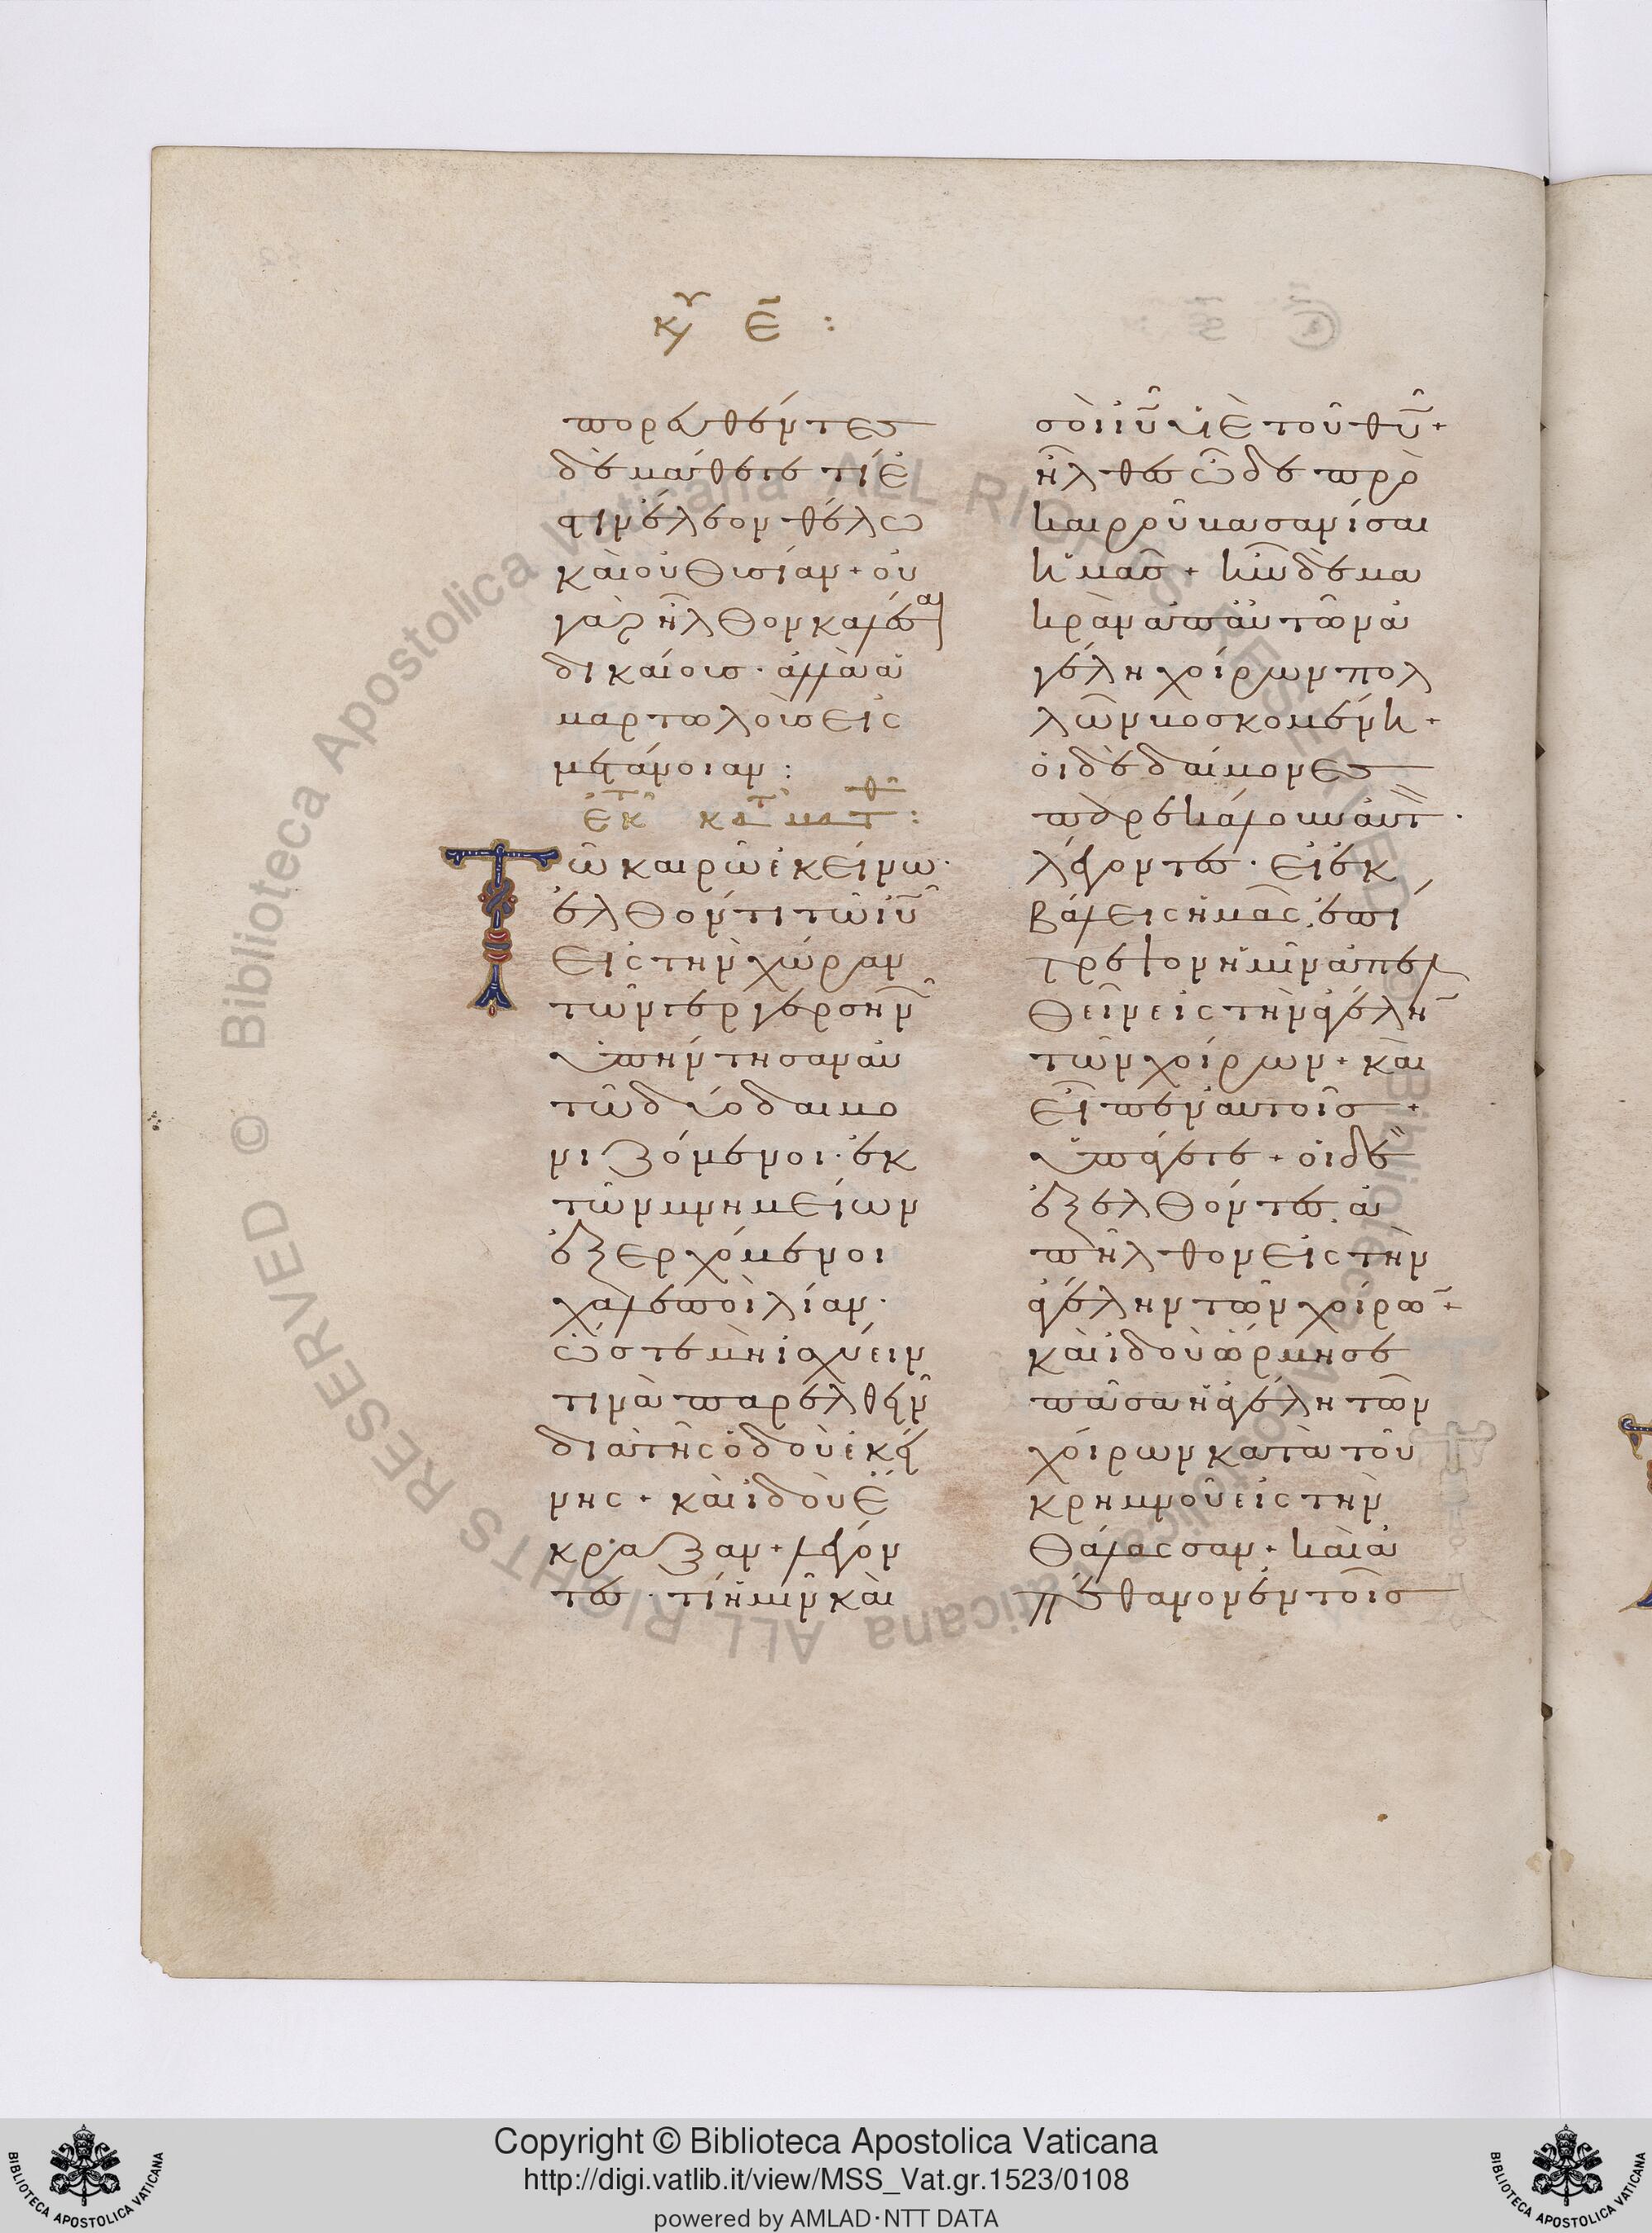 κυ ε :
πορευθέντες
δὲ μάθετε τί ἐ
στιν ἔλεον θέλω
καὶ οὐ θυσίαν + οὐ
γὰρ ἦλθον καλέσαι
δικαίους · ἀλλὰ ἁ
μαρτωλοὺς εἰς
μετάνοιαν :
ἐκ τοῦ κατὰ ματθ :
Τῶ καιρῶ ἐκείνω ·
ἐλθόντι τῶ ἰῦ
εἰς τὴν χώραν
τῶν γεργεσηνῶν
ὑπήντησαν αὐ
τῶ δύο δαιμο
νιζόμενοι · ἐκ
τῶν μνημείων
ἐξερχόμενοι
χαλεποὶ λίαν ·
ὥστε μὴ ἰσχύειν
τινὰ παρελθεῖν
διὰ τῆς ὁδοῦ ἐκεί
νης + καὶ ἰδοὺ ἔ
κραξαν + λέγον
τες · τί ἡμῖν καὶ
σοὶ ἰῦ υἱὲ τοῦ θῦ +
ἦλθες ὧδε πρὸ
καιροῦ βασανίσαι
ἡμᾶς + ἦν δὲ μα
κρὰν ἀπ' αὐτῶν ἀ
γέλη χοίρων πολ
λῶν βοσκομένη +
οἱ δὲ δαίμονες
παρεκάλουν αὐτ ·
λέγοντες · εἰ ἐκ
βάλεις ἡμᾶς, ἐπί
τρεψον ἡμῖν ἀπελ
θεῖν εἰς τὴν ἀγέλην
τῶν χοίρων + καὶ
εἶπεν αὐτοῖς +
ὑπάγετε + οἱ δὲ
ἐξελθόντες, ἀ
πῆλθον εἰς τὴν
ἀγέλην τῶν χοίρων +
καὶ ἰδοὺ ὥρμησε
πᾶσα ἡ ἀγέλη τῶν
χοίρων κατὰ τοῦ
κρημνοῦ εἰς τὴν
θάλασσαν + καὶ ἀ
πέθανον ἐν τοῖς
Copyright © Biblioteca Apostolica Vaticana
http://digi.vatlib.it/view/MSS_Vat.gr.1523/0108
powered by AMLAD·NTT DATA